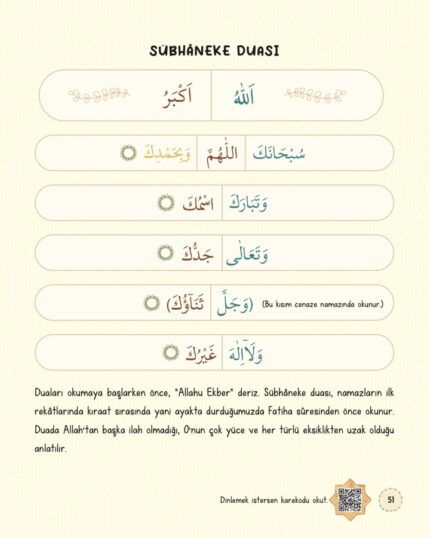 SÜBHÂNEKE DUASI
اَللّٰهُ اَكْبَرُ
سُبْحَانَكَ اللّٰهُمَّ وَبِحَمْدِكَ
وَتَبَارَكَ اسْمُكَ
وَتَعَالٰى جَدُّكَ
(وَجَلَّ ثَنَاؤُكَ) (Bu kısım cenaze namazında okunur.)
وَلَاۤ اِلٰهَ غَيْرُكَ
Duaları okumaya başlarken önce, "Allahu Ekber" deriz. Sübhâneke duası, namazların ilk
rekâtlarında kıraat sırasında yani ayakta durduğumuzda Fatiha sûresinden önce okunur.
Duada Allah'tan başka ilah olmadığı, O'nun çok yüce ve her türlü eksiklikten uzak olduğu
anlatılır.
Dinlemek istersen karekodu okut.
51